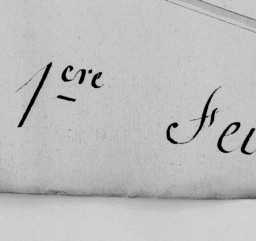 1ere Feu